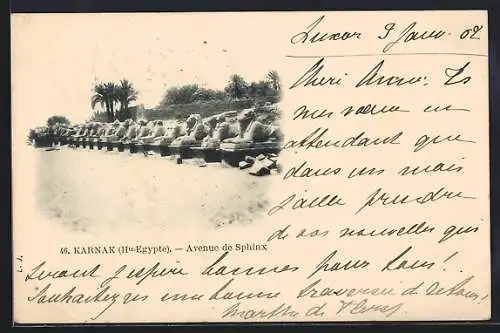 Luxor 3 Janv. 02
Chéri Anne. Et
mes vœux en
attendant que
dans un mois
j'aille prendre
de vos nouvelles qui
46. KARNAK (Hte-Egypte). — Avenue de Sphinx
L. J.
seront j'espère bonnes pour tous!
Souhaitez moi une bonne traversée de retour!
Marthe de